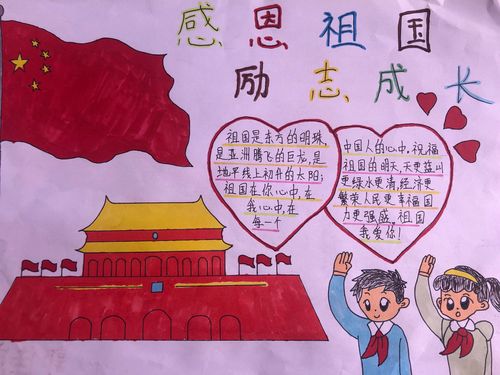 感恩祖国
励志成长
祖国是东方的明珠,
是亚洲腾飞的巨龙,是
地平线上初升的太阳;
祖国在你心中,在
我心中,在
每一个
中国人的心中.祝福
祖国的明天,天更蓝山
更绿水更清,经济更
繁荣人民更幸福国
力更强盛.祖国
我爱你!